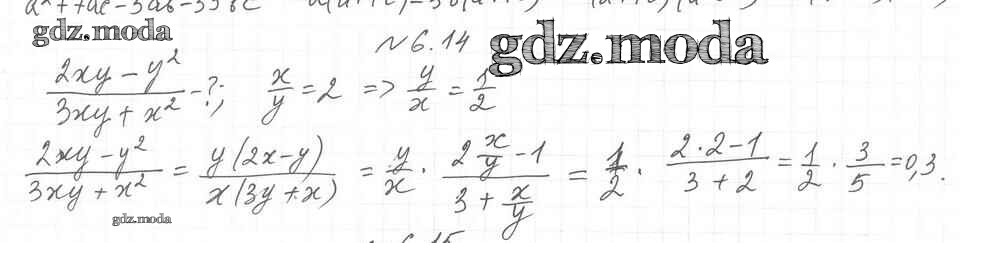 gdz.moda
№6.14
gdz.moda
(2xy - y²)/(3xy + x²) - ?; x/y = 2 => y/x = 1/2
(2xy - y²)/(3xy + x²) = y(2x - y)/(x(3y + x)) = y/x · (2 x/y - 1)/(3 + x/y) = 1/2 · (2·2 - 1)/(3 + 2) = 1/2 · 3/5 = 0,3.
gdz.moda